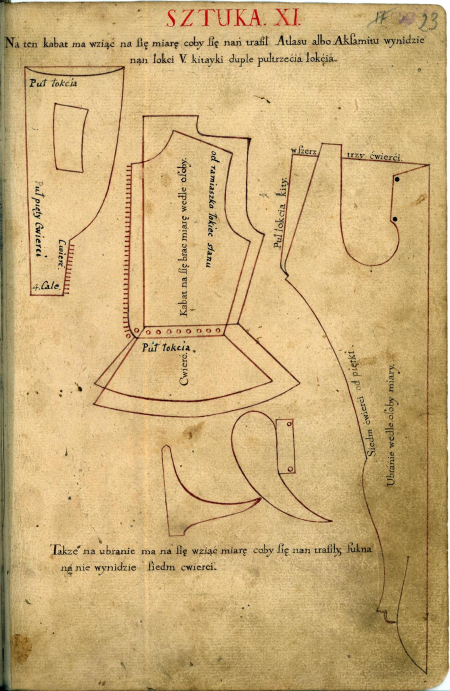 SZTUKA. XI.
23
Na ten kabat ma wziąć na się miarę coby się nań trafił Atłasu albo Aksamitu wynidzie
nań łokci V. kitayki duple pułtrzecia łokcia.
Puł łokcia
Puł pięty Cwierci
Cwierć.
4. Cale.
Kabat na się brać miarę wedle osoby.
od ramiączka łokieć stanu
Puł łokcia.
Cwierć.
wszerz trzy cwierci.
Puł łokcia kity.
Siedm cwierci od piętki.
Ubranie wedle osoby miary.
Także na ubranie ma na się wziąć miarę coby się nań trafiły, sukna
na nie wynidzie siedm cwierci.